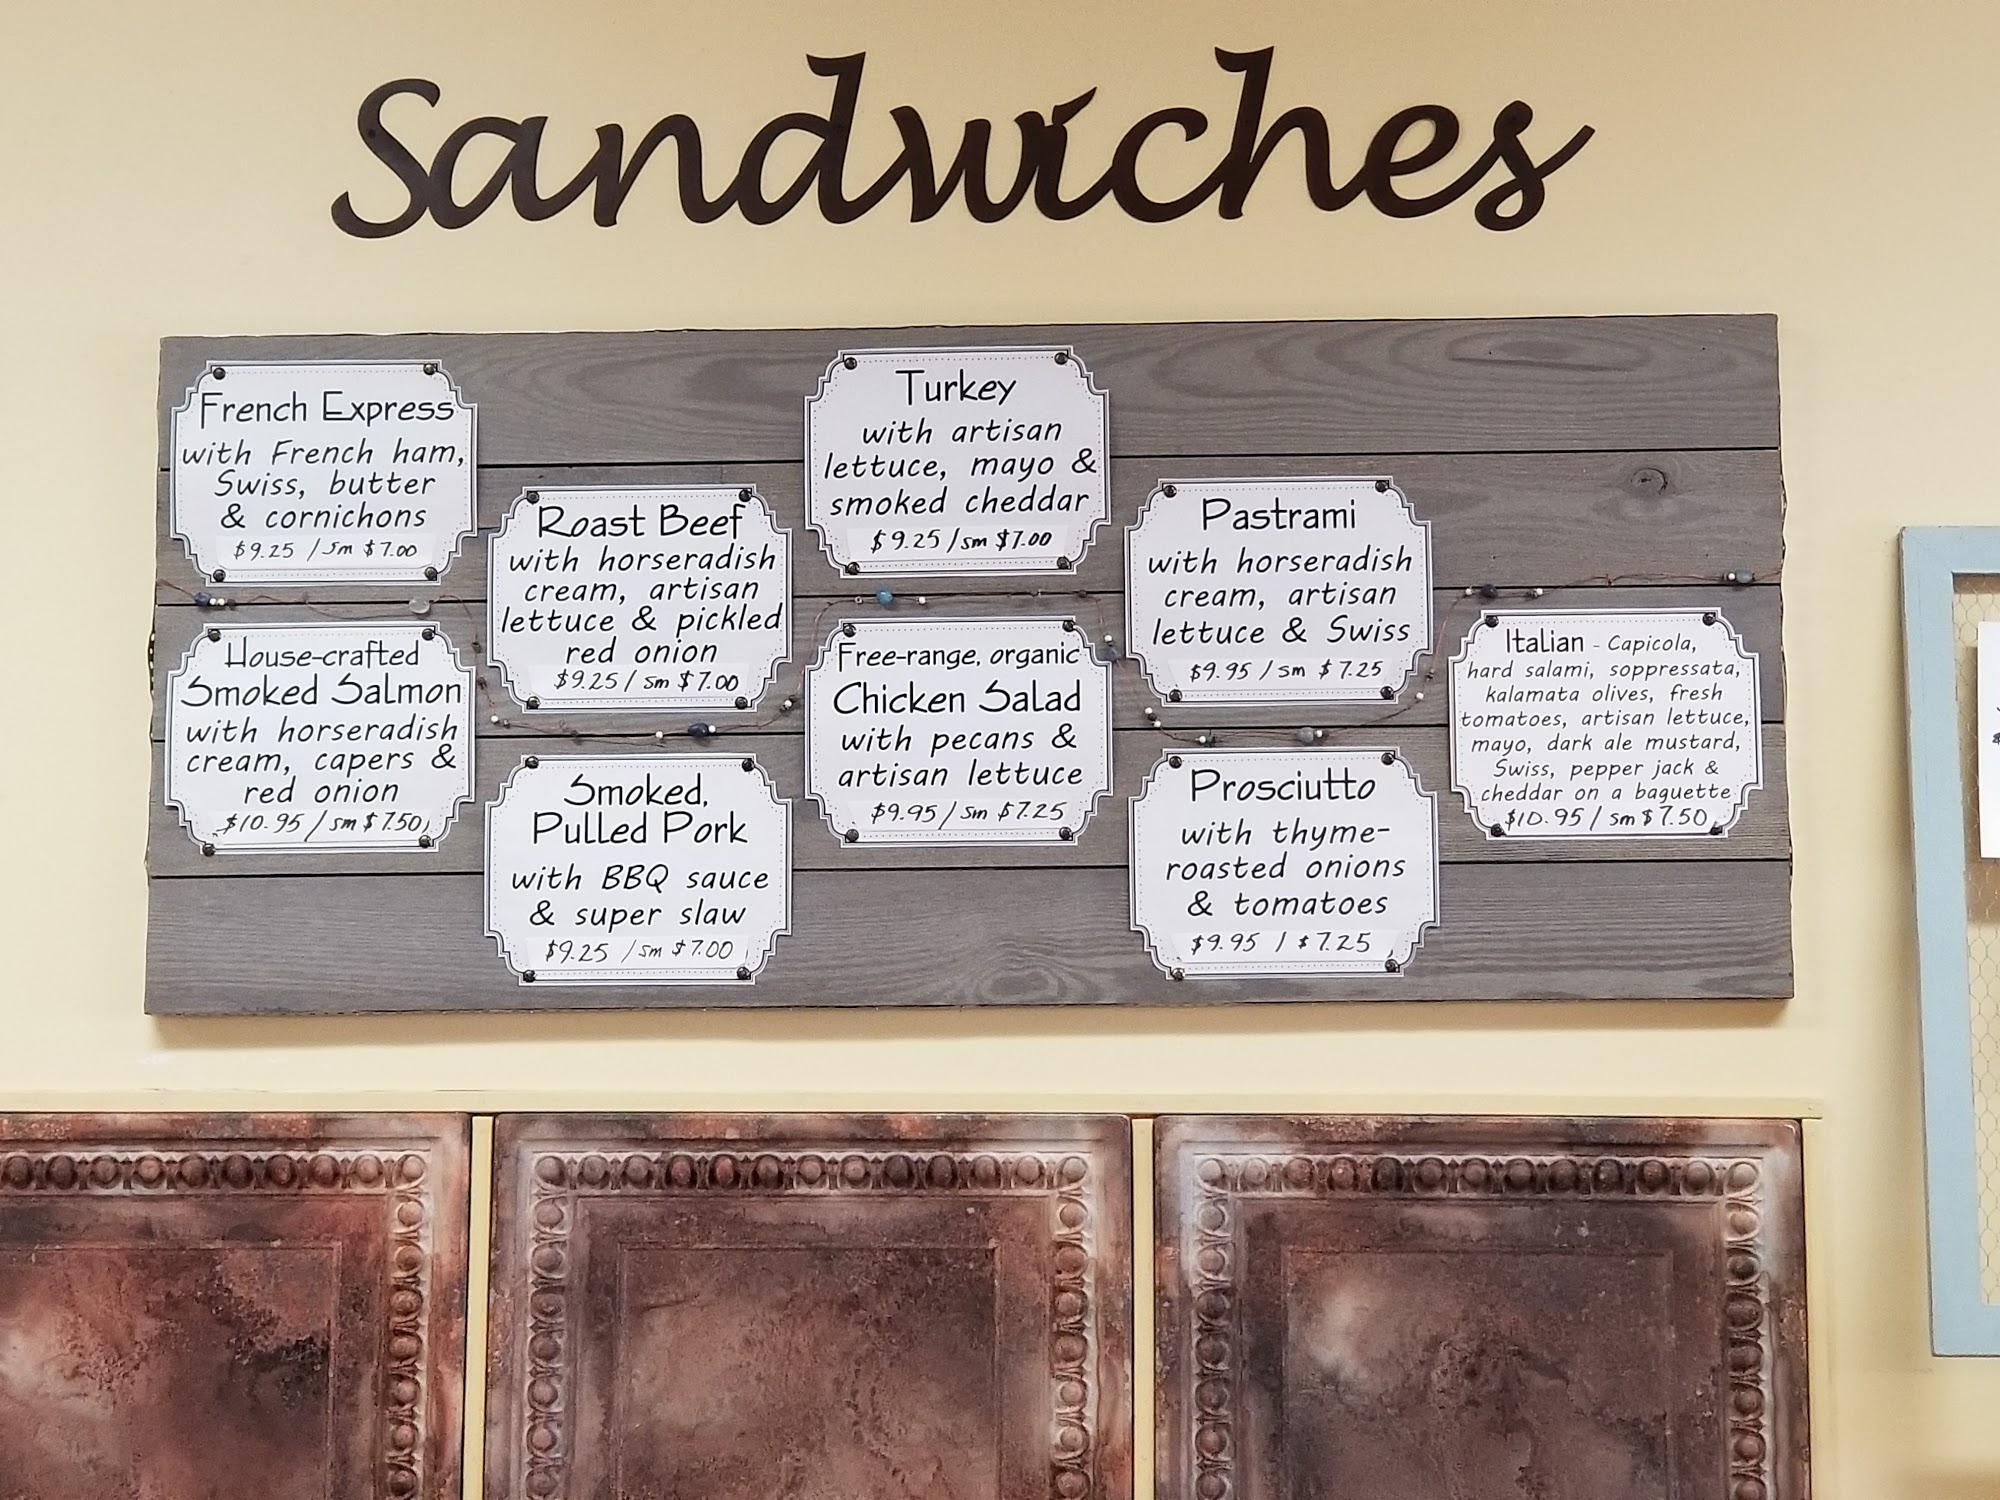 Sandwiches
French Express
with French ham,
Swiss, butter
& cornichons
$9.25 / sm $7.00
House-crafted
Smoked Salmon
with horseradish
cream, capers &
red onion
$10.95 / sm $7.50
Roast Beef
with horseradish
cream, artisan
lettuce & pickled
red onion
$9.25 / sm $7.00
Smoked,
Pulled Pork
with BBQ sauce
& super slaw
$9.25 / sm $7.00
Turkey
with artisan
lettuce, mayo &
smoked cheddar
$9.25 / sm $7.00
Free-range, organic
Chicken Salad
with pecans &
artisan lettuce
$9.95 / sm $7.25
Pastrami
with horseradish
cream, artisan
lettuce & Swiss
$9.95 / sm $7.25
Prosciutto
with thyme-
roasted onions
& tomatoes
$9.95 / $7.25
Italian - Capicola,
hard salami, soppressata,
kalamata olives, fresh
tomatoes, artisan lettuce,
mayo, dark ale mustard,
Swiss, pepper jack &
cheddar on a baguette
$10.95 / sm $7.50